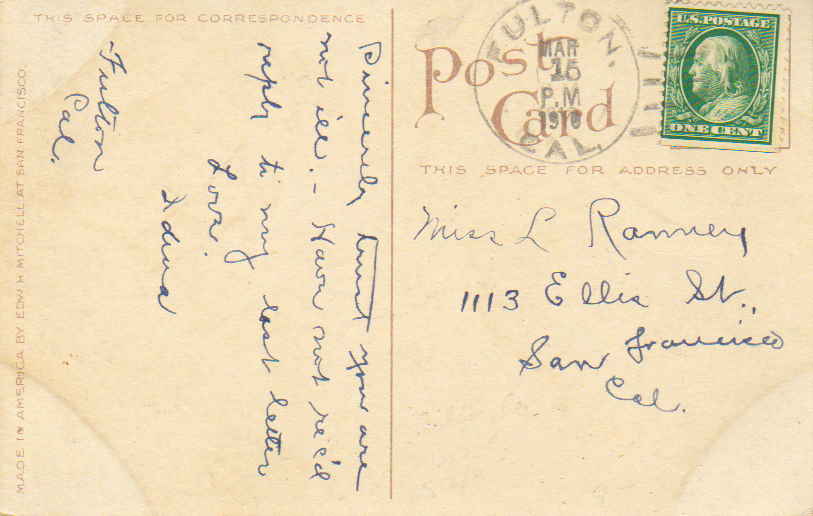 THIS SPACE FOR CORRESPONDENCE
Fulton
Cal.
Sincerely trust you are
not ill. - Have not rec'd
reply to my last letter
Love
Edna
MADE IN AMERICA BY EDW H MITCHELL AT SAN FRANCISCO
Post Card
FULTON, CAL.
MAR
15
P.M
1910
U.S. POSTAGE
ONE CENT
THIS SPACE FOR ADDRESS ONLY
Miss L Ranney
1113 Ellis St.,
San Francisco
Cal.